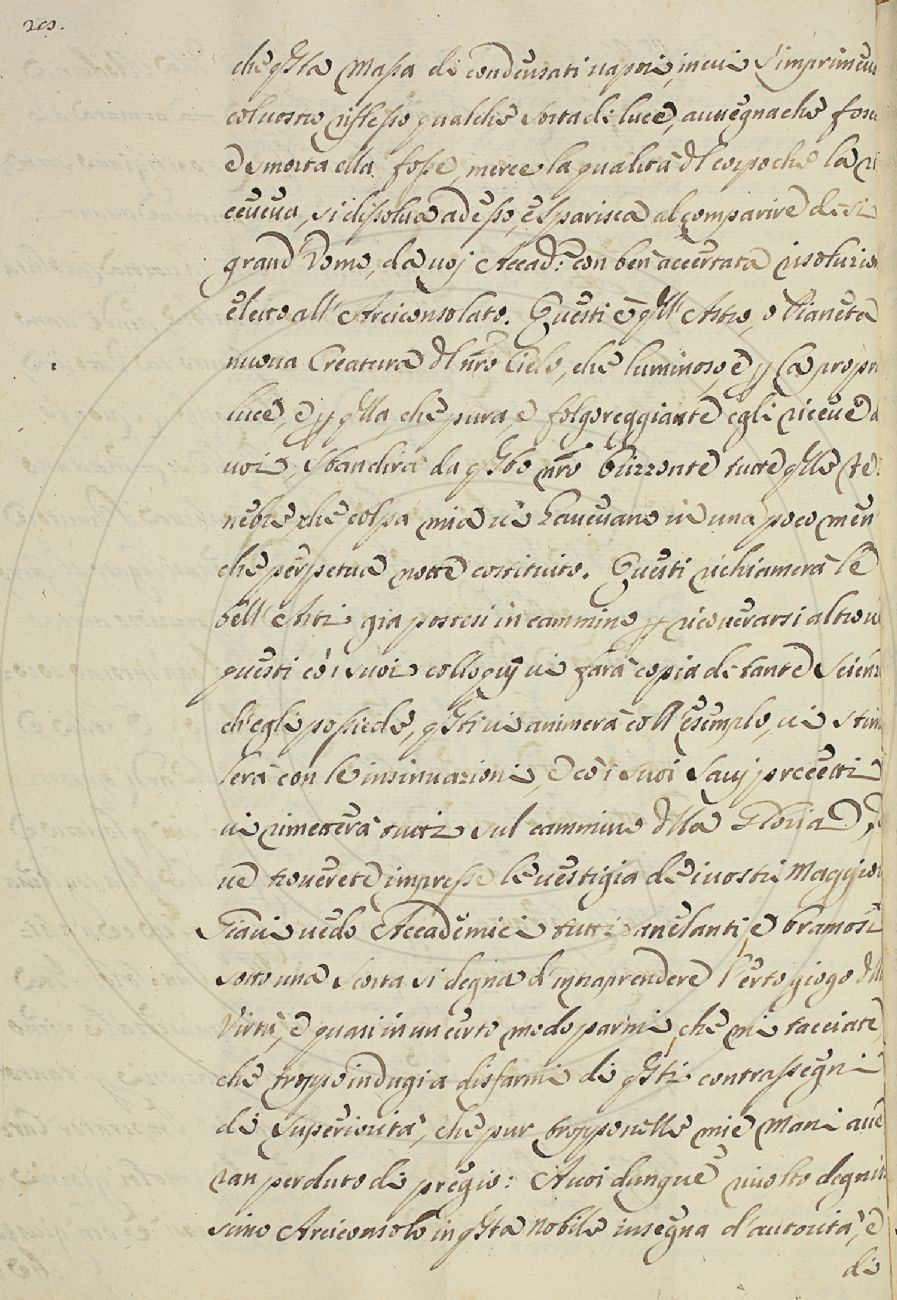 203.
che qsta Massa di condensati vapori, in cui s'imprimeva
col vostro riflesso qualche sorta di luce, avvegnache fosca
e smorta ella fosse, merce la qualità dl corpo che la ri
ceveva, si dissolva adesso, e sparisca al comparire di si
grand' Uomo, da voj Accad: con ben accertata risoluzion
eletto all' Arciconsolato. Questi è qll' Astro, o Pianeta
nuova Creatura dl nro Cielo, che luminoso, e p la propri
luce, e p qlla che pura, e folgoreggiante egli riceve da
voi sbandirà da qsto nro Orizzonte tutte qlle te
nebre che colpa mia vi havevano in una poco men
che perpetua notte costituito. Questi richiamerà le
bell' Arti già postesi in cammino p ricoverarsi altrove
questi cò i suoi colloquij vi farà copia di tante scienz
ch'egli possiede, qsti vi animerà coll' esemplo, vi stim
lerà con le insinuazioni, e cò i suoi savj precetti
vi rimetterà tutti sul cammino dlla Gloria, 
ve troverete impresse le vestigia de i vostri Maggiori
Già vi vedo Accademici tutti anelanti, e bramosi
sotto una scorta si degna d'intraprendere l'erto giogo dlla
Virtù, e quasi in un certo modo parmi, che mi tacciate,
che troppo indugi a disfarmi di qsti contrassegni
di superiorità, che pur troppo nelle mie mani ave
van perduto di pregio: A voi dunque rivolto degnis
simo Arciconsolo in qsta nobile insegna d'autorità, e
di